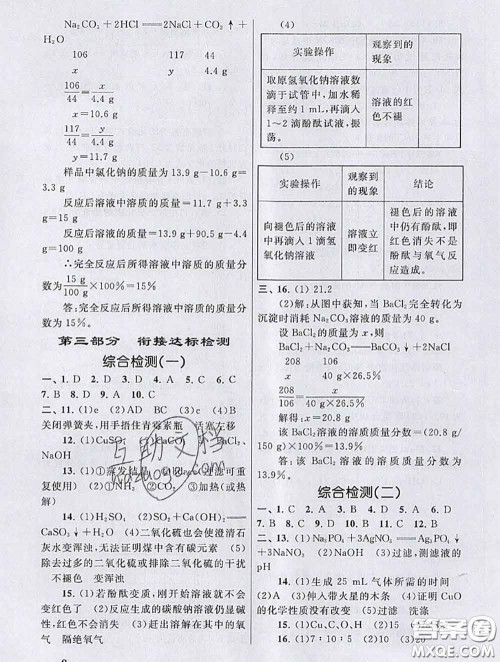 Na₂CO₃+2HCl══2NaCl+CO₂↑+
H₂O
106 117 44
x y 4.4 g
106/44=x/4.4 g
x=10.6 g
117/44=y/4.4 g
y=11.7 g
样品中氯化钠的质量为13.9 g-10.6 g=
3.3 g
反应后溶液中溶质的质量为11.7 g+
3.3 g=15 g
反应后溶液的质量为13.9 g+90.5 g-4.4 g
=100 g
∴完全反应后所得溶液中溶质的质量分
数为15 g/100 g×100%=15%
答:完全反应后所得溶液中溶质的质量分
数为15%。
第三部分 衔接达标检测
综合检测(一)
一、1. D 2. D 3. D 4. A 5. C 6. C
7. B 8. B 9. A 10. D
二、11. (1)e (2)AD BC (3)e (4)B
关闭弹簧夹,用手捂住青霉素瓶 活塞左移
12. (1)CuSO₄ BaCO₃
NaOH
13. (1)①蒸发结晶 ②过滤 ③过滤(可重
复使用) (2)①NH₃ ②CO₂ (3)加水(或热
解)
14. (1)H₂SO₄ (2)SO₂+Ca(OH)₂══
CaSO₃↓+H₂O (4)二氧化硫也会使澄清石
灰水变浑浊,无法证明煤中含有碳元素 (5)
除去过多的二氧化硫或排除二氧化硫的干扰
不褪色 变浑浊
15. (1)若酚酞变质,则溶液不会先变红
(2)反应生成的碳酸钠溶液仍显碱性,
仍是红色 (3)赶出溶解在其中的氧
气 隔绝氧气
(4)
实验操作 观察到的现象
取原氢氧化钠溶液数滴于试管中,加水稀释至约1 mL,再滴入1~2滴酚酞试液,振荡。 溶液的红色不褪
(5)
实验操作 观察到的现象 结论
向褪色后的溶液中再滴入1滴氢氧化钠溶液 溶液立即变红 褪色后的溶液中仍有酚酞,即红色消失不是酚酞与氧气反应造成。
三、16. (1) 21.2
(2)解:从图中获知,当BaCl₂完全转化为
沉淀时消耗Na₂CO₃溶液的质量为40 g。
设BaCl₂溶液中溶质的质量为x,则
BaCl₂+Na₂CO₃══BaCO₃↓+2NaCl
208 106
x 40 g×26.5%
208/x=106/(40 g×26.5%)
解得:x=20.8 g
该BaCl₂溶液的溶质质量分数为(20.8 g/
150 g)×100%=13.9%
答:该BaCl₂溶液的溶质质量分数为
13.9%。
综合检测(二)
一、1. C 2. A 3. A 4. B 5. C 6. D
7. B 8. B 9. C 10. C 11. B 12. D
二、13. (1)Na₃PO₄+3AgNO₃══Ag₃PO₄↓
+3NaNO₃ (2)过滤 (3)过滤,测滤液的
pH
14. (1)生成25 mL气体所需的时间
(2)过滤 (3)伸入带火星的木条 (4)证明CuO
的化学性质没有改变 (5)过滤 洗涤
15. (1)Cu、C、O、H (2)C
16. (1)7∶10∶5 (2)13 (3)20